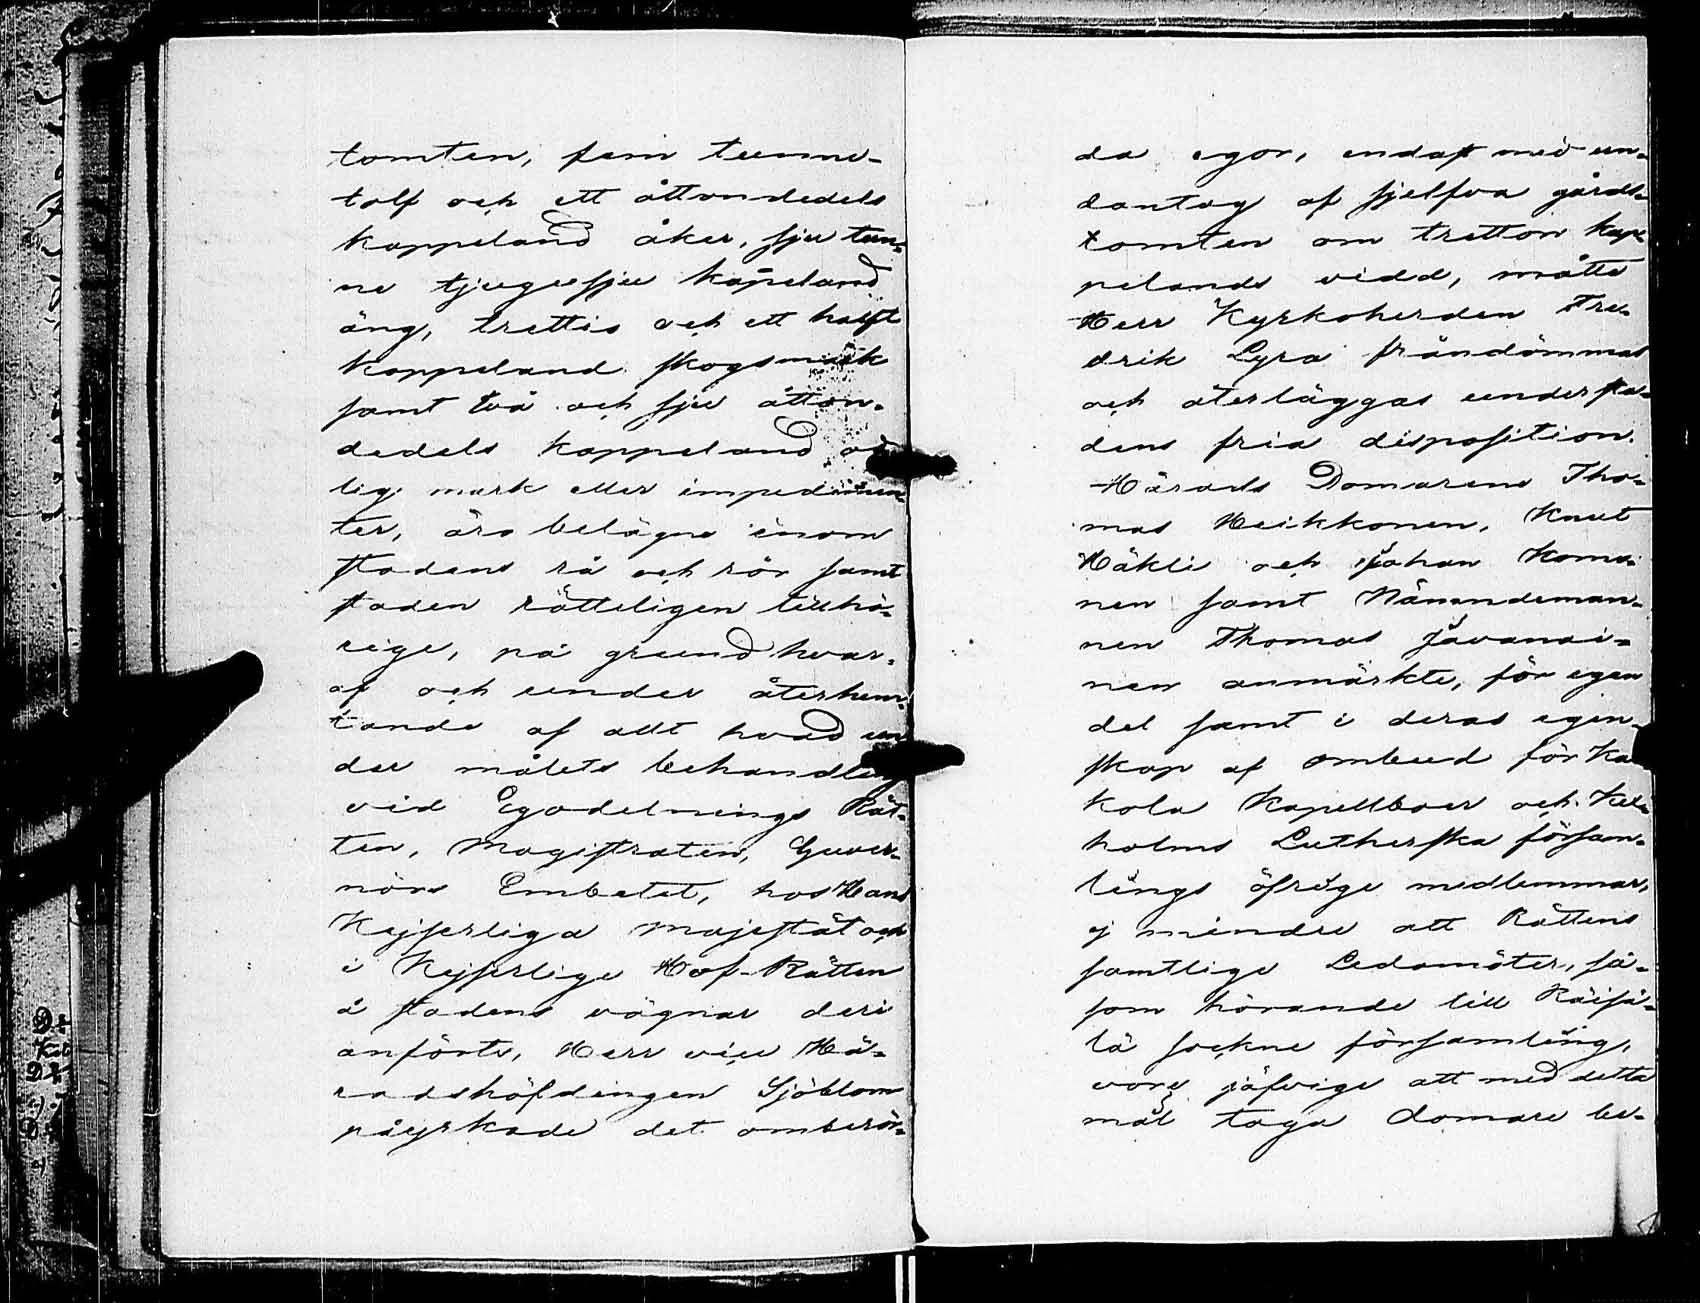 tomten, fem tunne-
tolf och ett åttondedels
kappeland åker, sju tun-
ne tjugusju kapeland
äng, trettio och ett halft
kappeland skogsmark
samt två och sju åtton-
dedels kappeland
lig mark eller impedimen-
ter, äro belägne inom
stadens rå och rör samt
staden rätteligen tillhö-
rige, på grund hvar-
af och under återhem-
tande af allt hvad un
der målets behandling
vid Egodelnings Rät-
ten, Magistraten, Guver-
nörs Embetet, hos Hans
Kejserliga Majestät och
i Kejserlige Hof-Rätten
å stadens vägnar deri
anförts, Herr vice Hä-
radshöfdingen Sjöblom
påyrkade det omberör-
da egor, endast med un-
dantag af sjelfva gårds-
tomten om tretton kap-
pelands vidd, måtte
Herr Kyrkoherden Fre-
drik Lyra fråndömmas
och återläggas under sta-
dens fria disposition.
Härads Domarene Tho-
mas Heikkonen, Knut
Häkli och Johan Komo-
nen samt Nämndeman-
nen Thomas Javanai-
nen anmärkte, för egen
del samt i deras egen-
skap af ombud för Ka
kola Kapellboer och Kex-
holms Lutherska försam-
lings öfrige medlemmar,
ej mindre att Rättens
samtlige Ledamöter, så-
som hörande till Räisä-
lä sockne församling,
vore jäfvige att med detta
mål taga domare be-